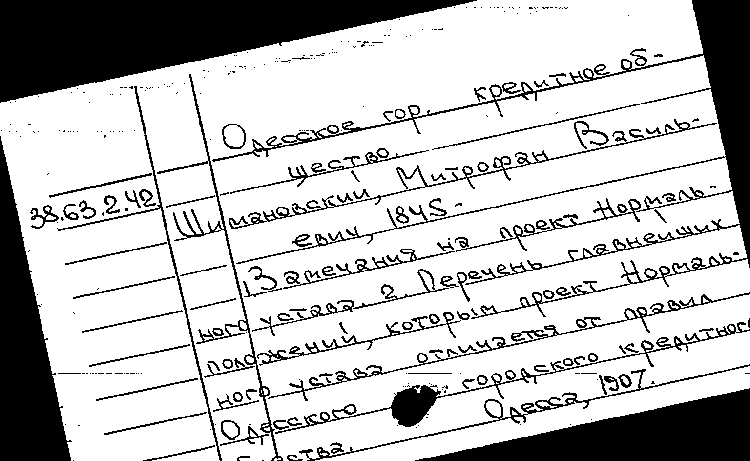 Одесское гор. кредитное об-
щество.
38.63.2.42
Шимановский, Митрофан Василь-
евич, 1845-
1. Замечания на проект Нормаль-
ного устава. 2. Перечень главнейших
положений, которым проект Нормаль-
ного устава отличается от правил
Одесского городского кредитного
Одесса, 1907.